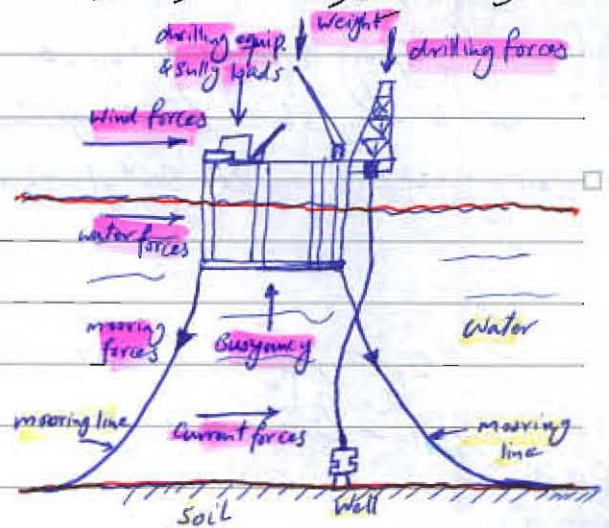 weight
drilling equip.
& sully loads
drilling forces
wind forces
water forces
mooring
forces
Buoyancy
water
mooring line
current forces
mooring
line
Soil
Well